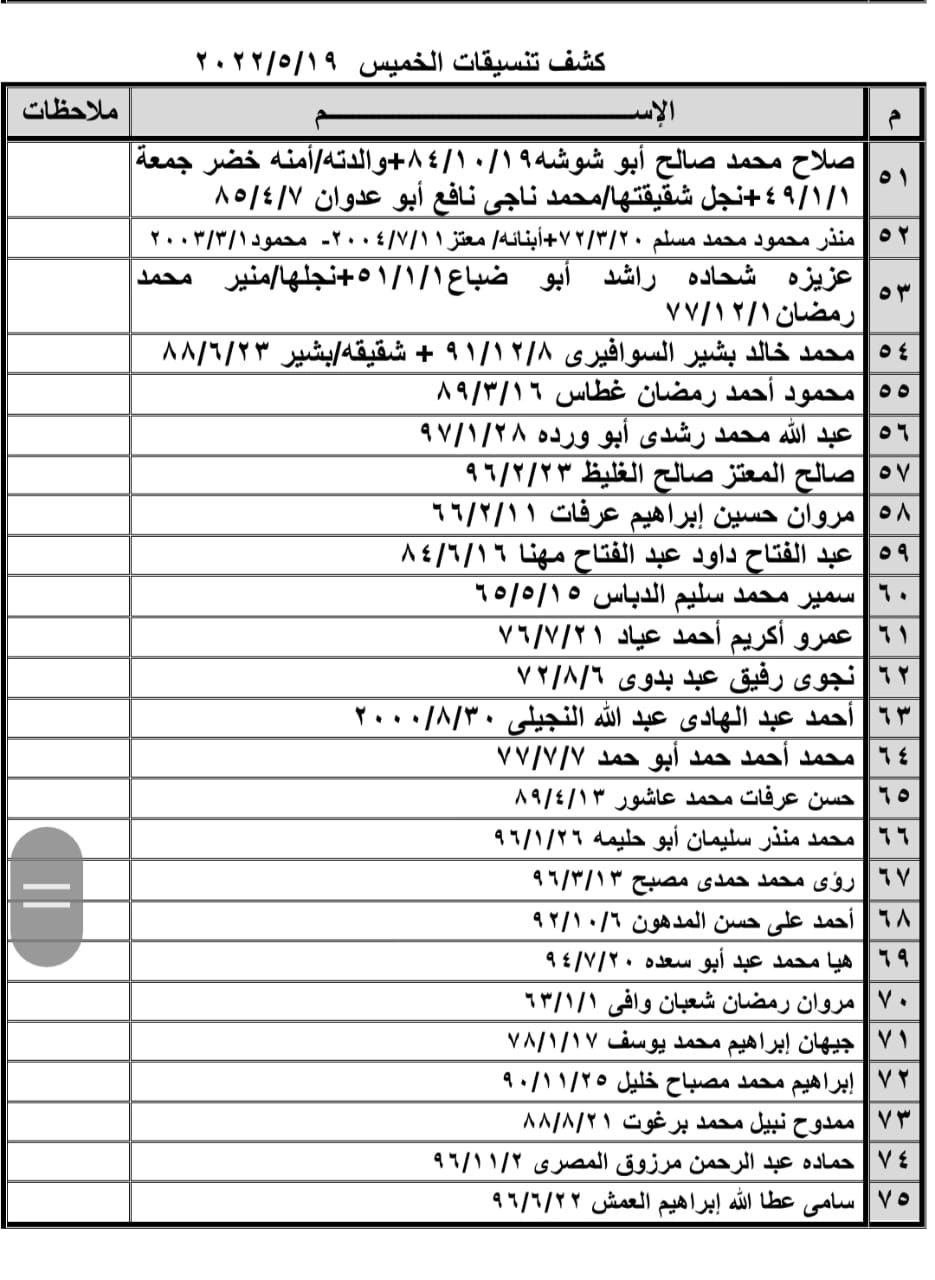 كشف تنسيقات الخميس ٢٠٢٢/٥/١٩
م الإســـــــــــــم ملاحظات
٥١ صلاح محمد صالح أبو شوشه٨٤/١٠/١٩+والدته/أمنه خضر جمعة
٤٩/١/١+نجل شقيقتها/محمد ناجى نافع أبو عدوان ٨٥/٤/٧
٥٢ منذر محمود محمد مسلم ٧٢/٣/٢٠+أبنائه/ معتز٢٠٠٤/٧/١١- محمود٢٠٠٣/٣/١
٥٣ عزيزه شحاده راشد أبو ضباع٥١/١/١+نجلها/منير محمد
رمضان٧٧/١٢/١
٥٤ محمد خالد بشير السوافيرى ٩١/١٢/٨ + شقيقه/بشير ٨٨/٦/٢٣
٥٥ محمود أحمد رمضان غطاس ٨٩/٣/١٦
٥٦ عبد الله محمد رشدى أبو ورده ٩٧/١/٢٨
٥٧ صالح المعتز صالح الغليظ ٩٦/٢/٢٣
٥٨ مروان حسين إبراهيم عرفات ٦٦/٢/١١
٥٩ عبد الفتاح داود عبد الفتاح مهنا ٨٤/٦/١٦
٦٠ سمير محمد سليم الدباس ٦٥/٥/١٥
٦١ عمرو أكريم أحمد عياد ٧٦/٧/٢١
٦٢ نجوى رفيق عبد بدوى ٧٢/٨/٦
٦٣ أحمد عبد الهادى عبد الله النجيلى ٢٠٠٠/٨/٣٠
٦٤ محمد أحمد حمد أبو حمد ٧٧/٧/٧
٦٥ حسن عرفات محمد عاشور ٨٩/٤/١٣
٦٦ محمد منذر سليمان أبو حليمه ٩٦/١/٢٦
٦٧ رؤى محمد حمدى مصبح ٩٦/٣/١٣
٦٨ أحمد على حسن المدهون ٩٢/١٠/٦
٦٩ هيا محمد عبد أبو سعده ٩٤/٧/٢٠
٧٠ مروان رمضان شعبان وافى ٦٣/١/١
٧١ جيهان إبراهيم محمد يوسف ٧٨/١/١٧
٧٢ إبراهيم محمد مصباح خليل ٩٠/١١/٢٥
٧٣ ممدوح نبيل محمد برغوت ٨٨/٨/٢١
٧٤ حماده عبد الرحمن مرزوق المصرى ٩٦/١١/٢
٧٥ سامى عطا الله إبراهيم العمش ٩٦/٦/٢٢